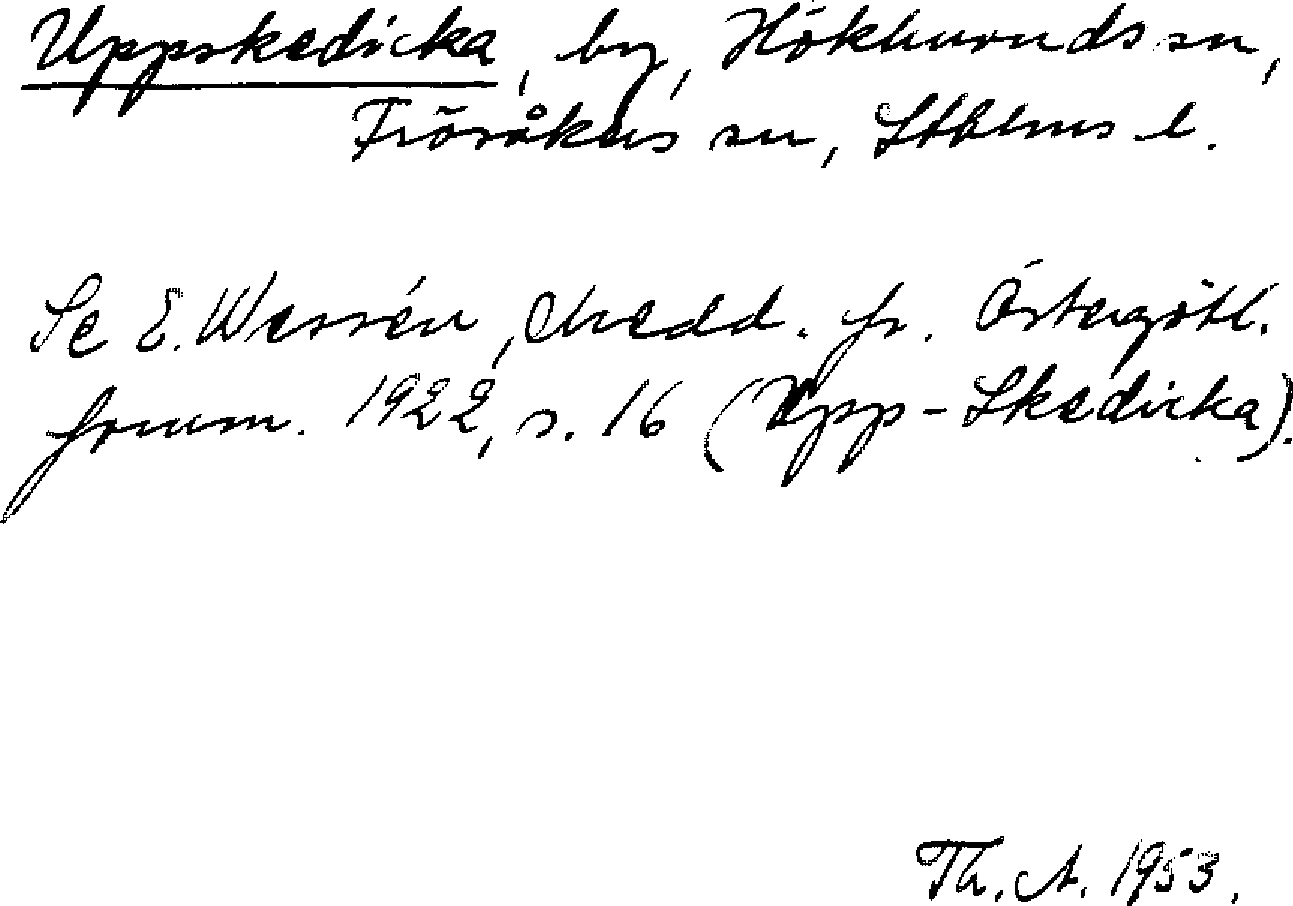 Uppskedicka, by, Hökhuvuds sn,
Frösåkers sn, Sthlms l.
Se E. Wessén, Medd. fr. Östergötl.
fornm. 1922, s. 16 (Upp-Skedicka).
Th. A. 1953.